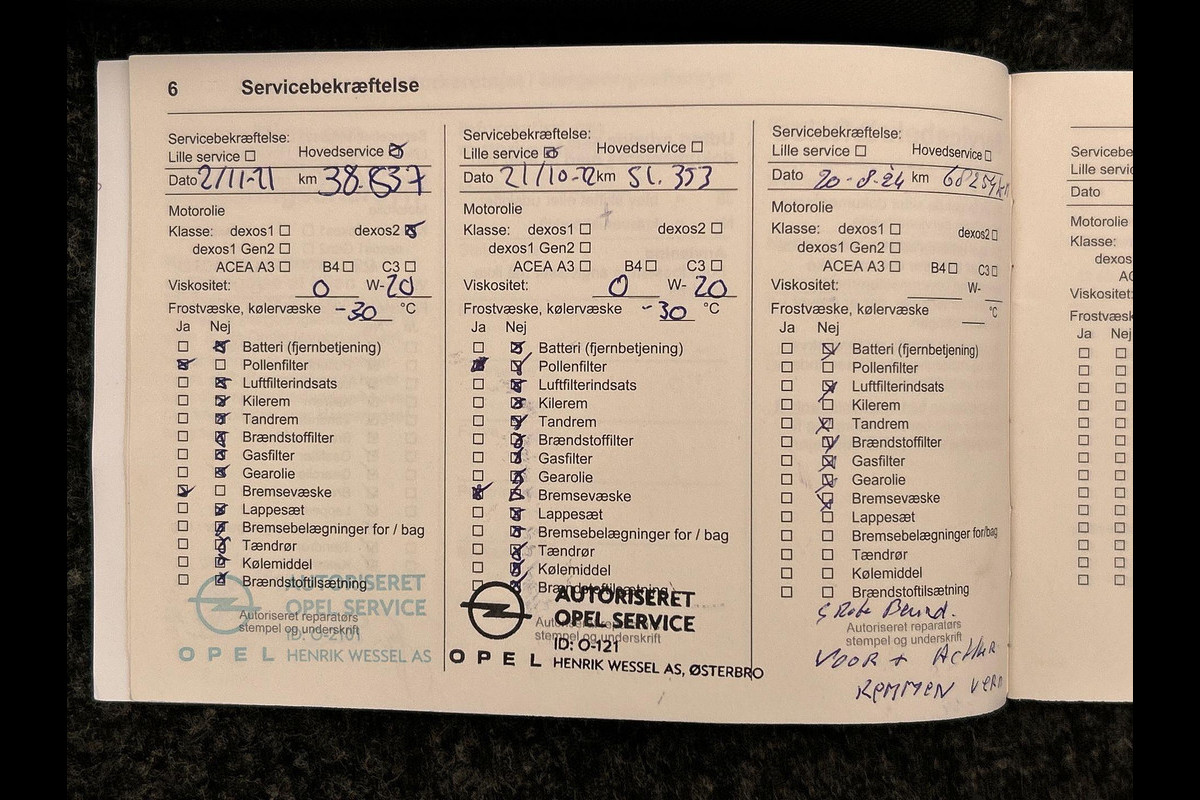 6 Servicebekræftelse
Servicebekræftelse:
Lille service Hovedservice
Dato 2/11-21 km 38.637
Motorolie
Klasse: dexos1 dexos2
dexos1 Gen2
ACEA A3 B4 C3
Viskositet: 0 W-20
Frostvæske, kølervæske -30 °C
Ja Nej
Batteri (fjernbetjening)
Pollenfilter
Luftfilterindsats
Kilerem
Tandrem
Brændstoffilter
Gasfilter
Gearolie
Bremsevæske
Lappesæt
Bremsebelægninger for / bag
Tændrør
Kølemiddel
Brændstoftilsætning
AUTORISERET
OPEL SERVICE
Autoriseret reparatørs
stempel og underskrift
ID: O-2101
OPEL HENRIK WESSEL AS
Servicebekræftelse:
Lille service Hovedservice
Dato 21/10-22 km 51.353
Motorolie
Klasse: dexos1 dexos2
dexos1 Gen2
ACEA A3 B4 C3
Viskositet: 0 W-20
Frostvæske, kølervæske -30 °C
Ja Nej
Batteri (fjernbetjening)
Pollenfilter
Luftfilterindsats
Kilerem
Tandrem
Brændstoffilter
Gasfilter
Gearolie
Bremsevæske
Lappesæt
Bremsebelægninger for / bag
Tændrør
Kølemiddel
Brændstoftilsætning
AUTORISERET
OPEL SERVICE
Autoriseret reparatørs
stempel og underskrift
ID: O-121
OPEL HENRIK WESSEL AS, ØSTERBRO
Servicebekræftelse:
Lille service Hovedservice
Dato 20-8-24 km 68254km
Motorolie
Klasse: dexos1 dexos2
dexos1 Gen2
ACEA A3 B4 C3
Viskositet: W-
Frostvæske, kølervæske °C
Ja Nej
Batteri (fjernbetjening)
Pollenfilter
Luftfilterindsats
Kilerem
Tandrem
Brændstoffilter
Gasfilter
Gearolie
Bremsevæske
Lappesæt
Bremsebelægninger for/bag
Tændrør
Kølemiddel
Brændstoftilsætning
Autoriseret reparatørs
stempel og underskrift
VOOR + Achter
REMMEN
Servicebe
Lille servic
Dato
Motorolie
Klasse:
dexos
AC
Viskositet:
Frostvæsk
Ja Nej